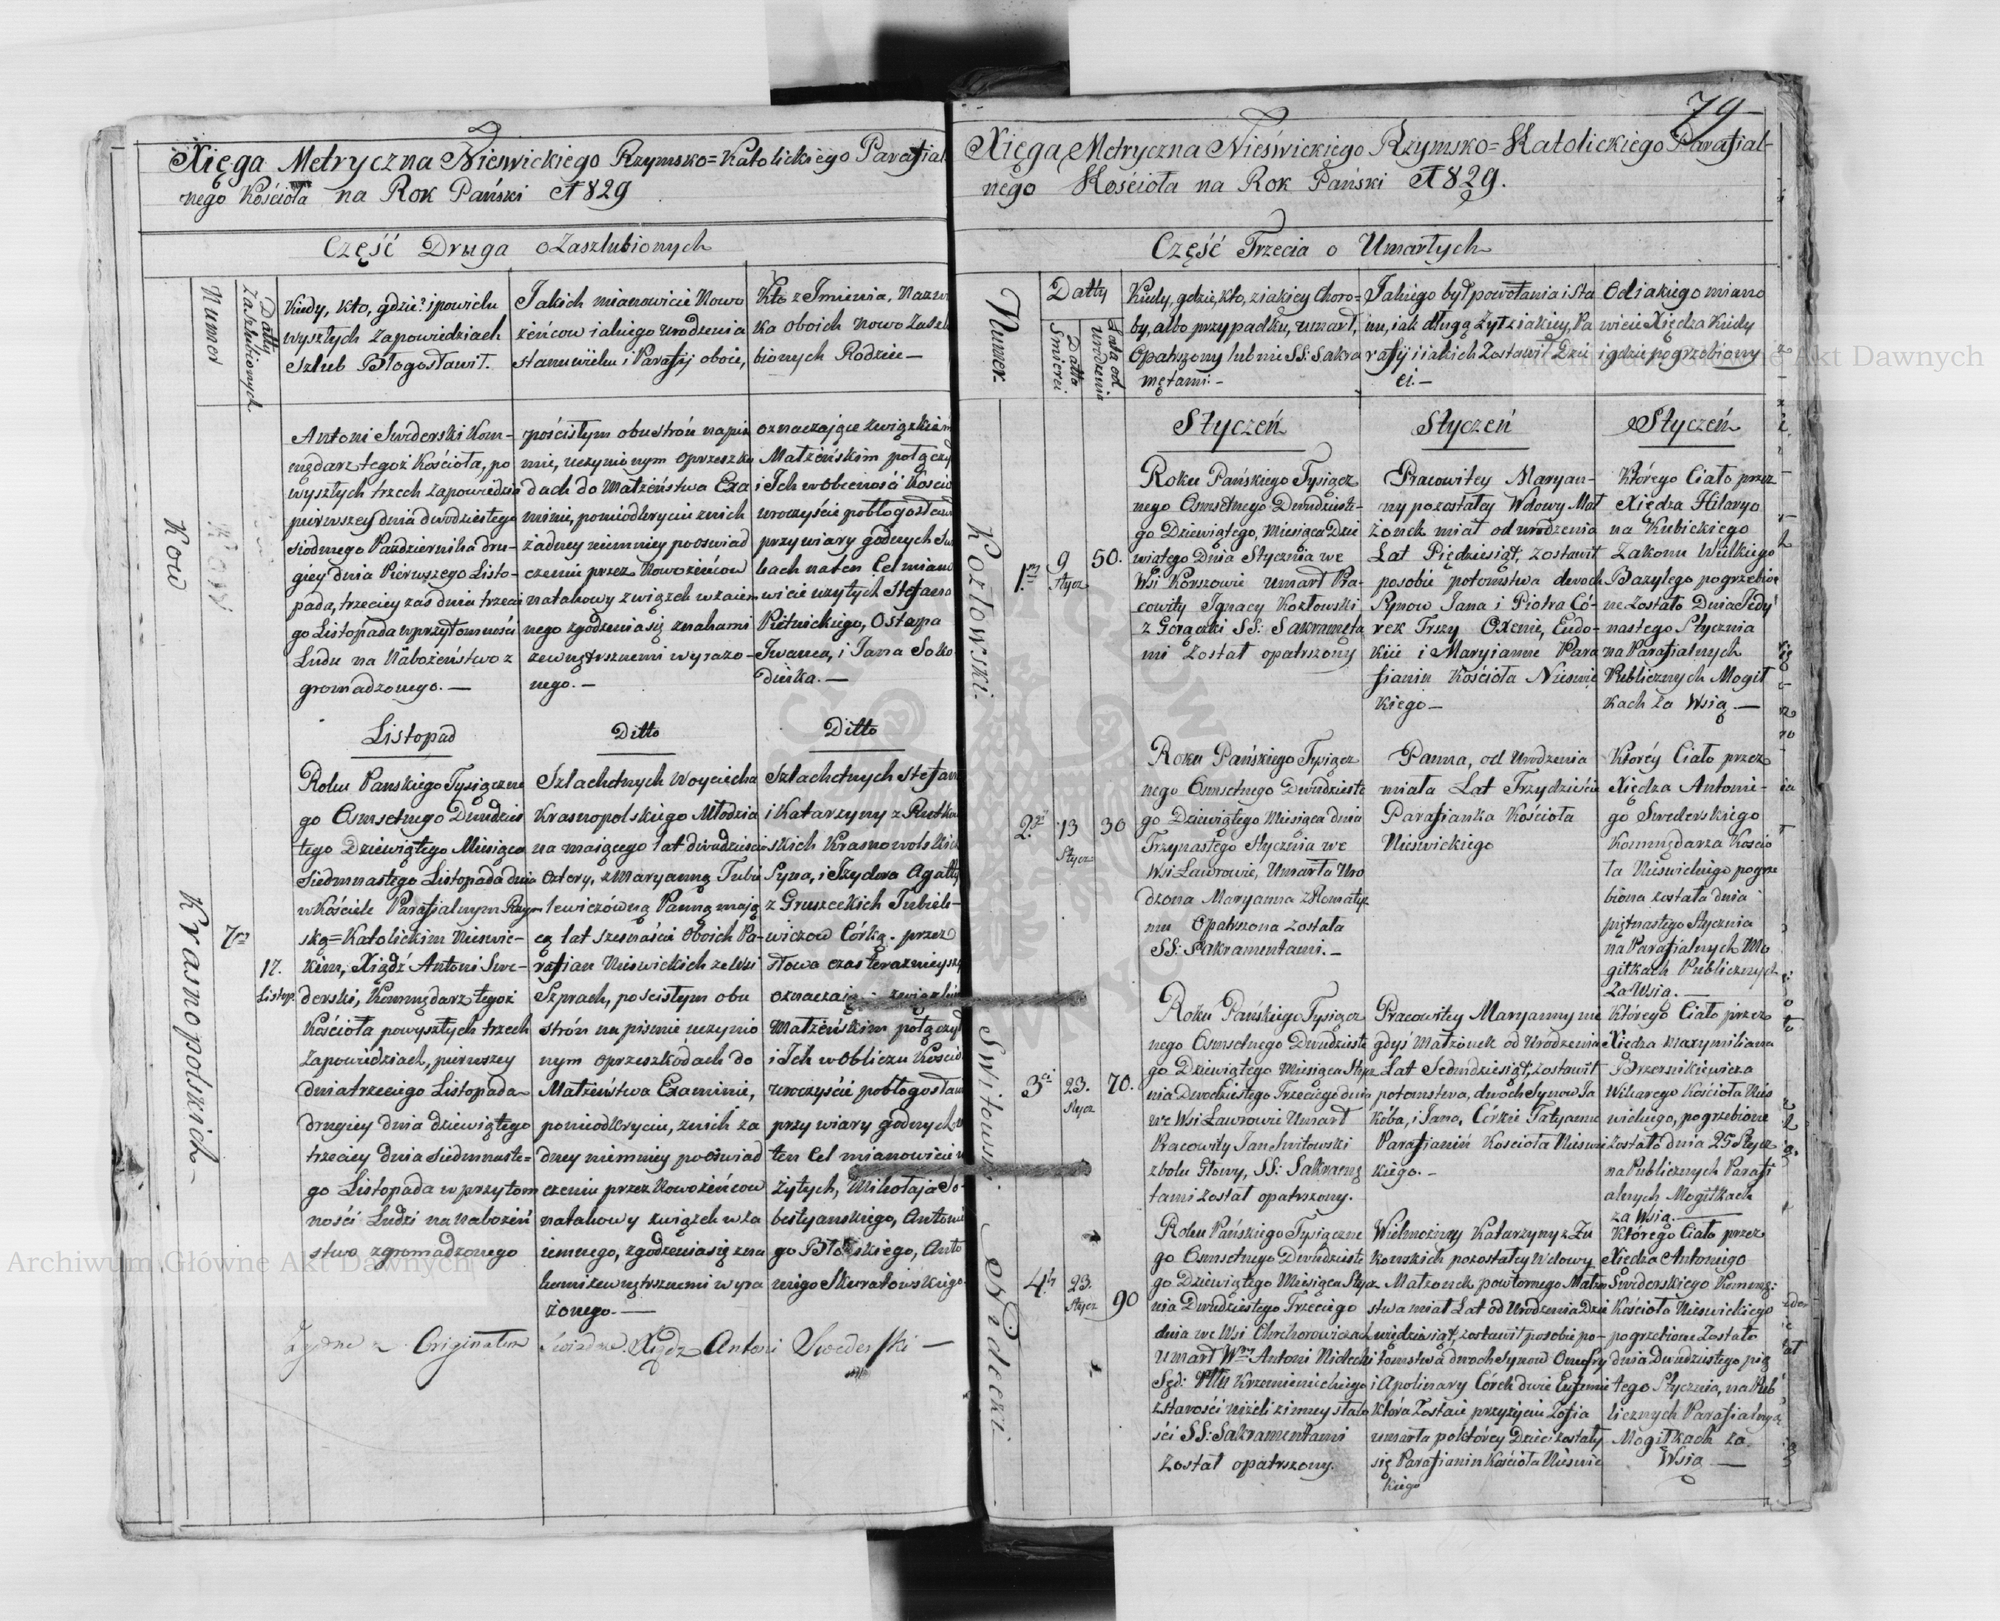 Xięga Metryczna Nieswickiego Rzymsko=Katolickiego Parafial
nego Kościoła na Rok Pański 1829
Część Druga o Zaszlubionych
Numer
Datty Zaszlubionych
Kiedy, kto, gdzie? i powielu
wyszłych Zapowiedziach
Szlub Błogosławił.
Jakich mianowicie Nowo
żeńcow i alnego urodzenia
stanu wieku i Parafij oboie,
Kto z Imienia, Nazwi
ka oboich nowo Zaszlu
bionych Rodzice —
Antoni Swederski Kom-
mędarz tegoż Kościoła, po
wyszłych trzech zapowiedzia
pierwszey dnia dwudziestego
siodmego Pazdziernika dru-
giey dnia Pierwszego Listo-
pada, trzeciey zas dnia trzeci
go Listopada w przytomnosci
Ludu na Nabożeństwo z
gromadzonego. —
pościsłym obu strón na piś
mie, uczynionym oprzeszko
dach do Małżeństwa Exa
minie, poniodkryciu znich
żadney niemniey poośwíad
czeniu przez Nowożeńców
natakowy związek wzaiem
nego zgodzenia się znakami
zewnętrznemi wyrazo-
nego. —
oznaczaiące związkiem
Małżeńskim połączy
i Ich w obecnosci Koscio
uroczyscie pobłogosław
przy wiary godnych Św
kach na ten Cel miano
wicie użytych Stefana
Pietnickiego, Ostapa
Iwanca, i Jana Soko
dieńka. —
Listopad
Ditto
Ditto
7my
17.
Listop.
Krasnopolskich
Roku Panskiego Tysiączne
go Osmsetnego Dwudzies
tego Dziewiątego Miesiąca
Siedmnastego Listopada dnia
w Kościele Parafialnym Rzym
sko=Katolickim Nieswic-
kim, Xiądz Antoni Swe-
derski, Kommędarz tegoż
Kościoła powyszłych trzech
Zapowiedziach, pierwszey
dnia trzeciego Listopada
drugiey dnia dziewiątego
trzeciey dnia siedmnaste=
go Listopada w przytom
ności Ludzi na nabożeń
stwo zgromadzonego
Szlachetnych Woyciecha
Krasnopolskiego Młodzia
na maiącego lat dwadzieścia
cztery, z Maryanną Tubie
lewiczówną Panną mają
cą lat szesnaście oboich Pa-
rafian Nieswickich ze Wsi
Szprach, pościsłym obu
strón na piśmie uczynio
nym oprzeszkódach do
Małżeństwa Examinie,
poniodkryciu, znich ża
dney niemniey pooświad
czeniu przez Nowożeńców
natakowy związek wza
iemnego, zgodzenia się zna
kami zewnętrznemi wyra
żonego. —
Szlachetnych Stefana
i Katarzyny z Rutkow
skich Krasnowolskich
Syna, i Izydora Agatty
z Gruszeckich Tubiele-
wiczow Córką. przez
słowa czas teraznieyszy
oznaczaią związkiem
Małżeńskim połączył
i Ich w obliczu Koscio
uroczyście pobłogosław
przy wiary godnych
ten Cel mianowicie
żytych, Mikołaja So-
bestyanskiego, Antoni
go Błońskiego, Anto
niego Skuratowskiego.
Zgodno z Originałem świadczę Xiądz Antoni Swederski —
79
Xięga Metryczna Nieświckiego Rzymsko=Katolickiego Parafial-
nego Kościoła na Rok Pański 1829.
Część Trzecia o Umarłych
Numer.
Datty
Datta Smierci
Lata od Urodzenia
Kiedy, gdzie, kto, z iakiey Choro-
by, albo przypadku, umarł,
Opatrzony lub nie SS: Sakra
mętami. —
Jakiego był powołania i sta
nu, iak długą żył z iakiey, Pa
rafij i iakich zostawił Dzie
ci. —
Od iakiego miano
wicie Xiędza Kiedy
i gdzie pogrzebiony
Styczeń
Styczeń
Styczeń
Kozłowski.
1my
9 Stycz
50.
Roku Pańskiego Tysiącz
nego Osmsetnego Dwudzieste
go Dziewiątego, Miesiąca Dzie
wiątego Dnia Stycznia we
Wsi Korszowie umarł Pra
cowity Ignacy Kozłowski
z Gorączki SS: Sakramęta
mi Został opatrzony
Pracowitey Maryan-
ny pozostałey Wdowy Mał
żonek miał od urodzenia
Lat Pięćdziesiąt, zostawił
posobie potomstwa dwoch
Synow Jana i Piotra Có-
rek Trzy Oxenie, Eudo-
kiie i Maryianne Para
fianin Kościoła Nieswic
kiego —
Którego Ciało przez
Xiędza Hilaryo
na Kubickiego
Zakonu Wielkiego
Bazylego pogrzebio
ne Zostało Dnia Jedy
nastego Stycznia
na Parafialnych
Publicznych Mogił
kach za Wsią. —
2gi
13 Stycz
30
Roku Pańskiego Tysiącz
nego Osmsetnego Dwudzieste
go Dziewiątego Miesiąca dnia
Trzynastego Stycznia we
Wsi Ławrowie, Umarła Uro
dzona Maryanna z Romatyz
mu Opatrzona została
SS: Sakramentami. —
Panna, od Urodzenia
miała Lat Trzydzieści
Parafianka Kościoła
Nieswickiego
Którey Ciało przez
Xiędza Antonie-
go Swederskiego
Kommędarza Koscio
ła Nieswickiego pogrze
biona została dnia
piętnastego Stycznia
na Parafialnych Mo
giłkach Publicznych
Za Wsią. —
Switowski.
3ci
23. Stycz
70.
Roku Pańskiego Tysiącz
nego Osmsetnego Dwudzieste
go Dziewiątego Miesiąca Stycz
nia Dwudziestego Trzeciego dnia
we Wsi Ławrowie Umarł
Pracowity Jan Switowski
z bolu Głowy, SS: Sakramę
tami został opatrzony.
Pracowitey Maryanny nie
gdyś Małżonek od Urodzenia
Lat Siedmdziesiąt, zostawił
potomstwa, dwoch Synow Ja
kóba, i Jana, Córkę Tatyanne
Parafianin Kościoła Nieswic
kiego. —
Którego Ciało przez
Xiędza Maxymiliana
Brzesnikiewicza
Wikarego Kościoła Nies
wickiego, pogrzebione
zostało dnia 25 Stycz
na Publicznych Parafi
alnych Mogiłkach
za Wsią. —
Nidecki
4ty
23. Stycz
90
Roku Pańskiego Tysiączne
go Osmsetnego Dwudzieste
go Dziewiątego Miesiąca Stycz
nia Dwudziestego Trzeciego
dnia we Wsi Chrchorowiczach
umarł Wny Antoni Nidecki
Sęd: Pttu Krzemienieckiego
z starości niżeli z inney słabo
ści SS: Sakramentami
Został opatrzony.
Wielmożney Katarzyny z Zu
kowskich pozostałey Wdowy
Małżonek powtornego Małżeń
stwa miał Lat od Urodzenia Dzie
więdziesiąt, zostawił posobie po-
tomstwa dwoch Synow Onufry
i Apolinary Córek dwie Eufemie
która Zostaie przyżyciu Zofia
umarła poktórey Dzieci zostały
się Parafianin Kościoła Nieswic
kiego
Którego Ciało przez
Xiędza Antoniego
Swederskiego Kommę:
Kościoła Nieswickiego
pogrzebione Zostało
dnia Dwudziestego pią
tego Stycznia, na Pub
licznych Parafialnych
Mogiłkach za
Wsią —
Archiwum Główne Akt Dawnych
Archiwum Główne Akt Dawnych